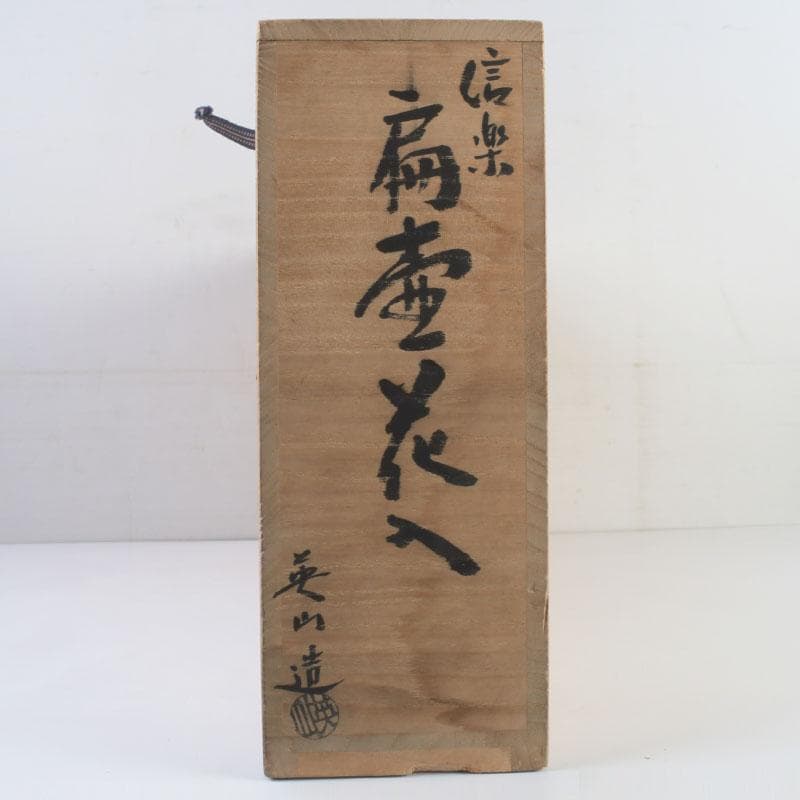 信楽
扁壷花入
英山造